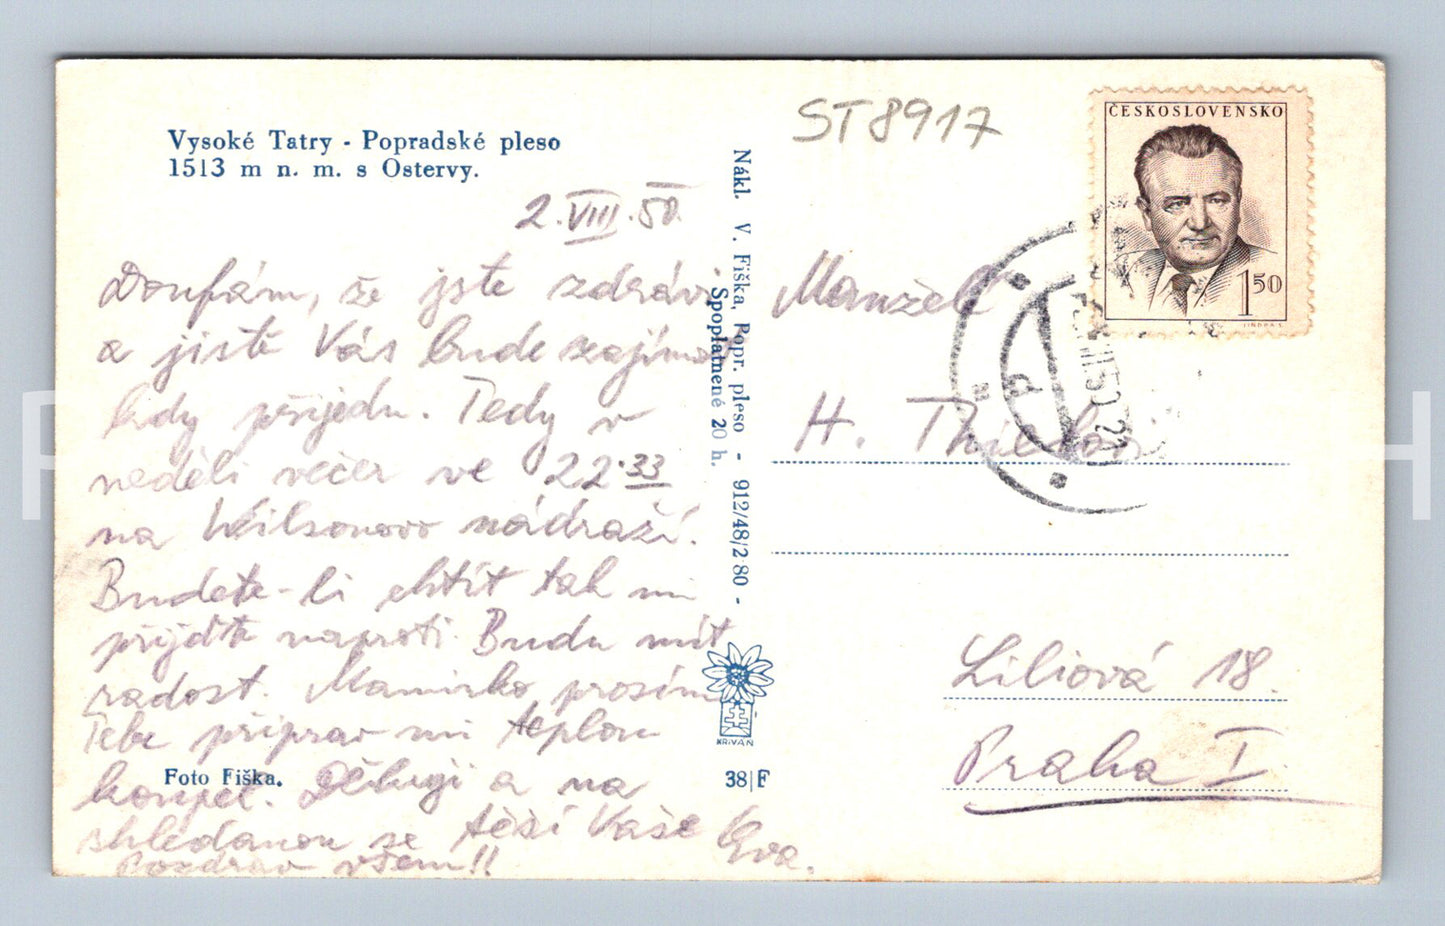 Vysoké Tatry - Popradské pleso
1513 m n. m. s Ostervy.
2. VIII. 50.
Doufám, že jste zdrávi
a jistě Vás bude zajímat
kdy přijedu. Tedy v
neděli večer ve 22.33
na Wilsonovo nádraží.
Budete-li chtít tak mi
přijďte naproti. Budu mít
radost. Maminko prosím
Tebe připrav mi teplou
koupel. Děkuji a na
shledanou se těší Vaše Eva.
Pozdrav všem!!
Foto Fiška.
Nákl. V. Fiška, Popr. pleso - 912/48/2 80 -
Spoplatnené 20 h.
KRIVÁŇ
38|F
ST8917
ČESKOSLOVENSKO
1 50
Manželé
H.
Liliová 18.
Praha I